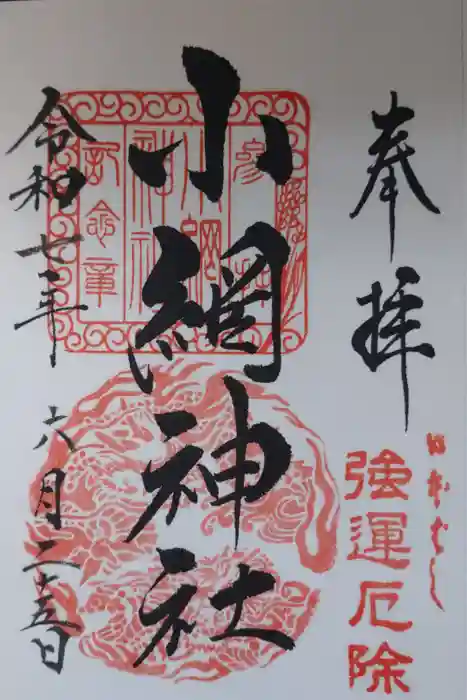 奉拝
強運厄除
小網神社
参拝
小網
神社
記念章
令和七年
六月二十五日